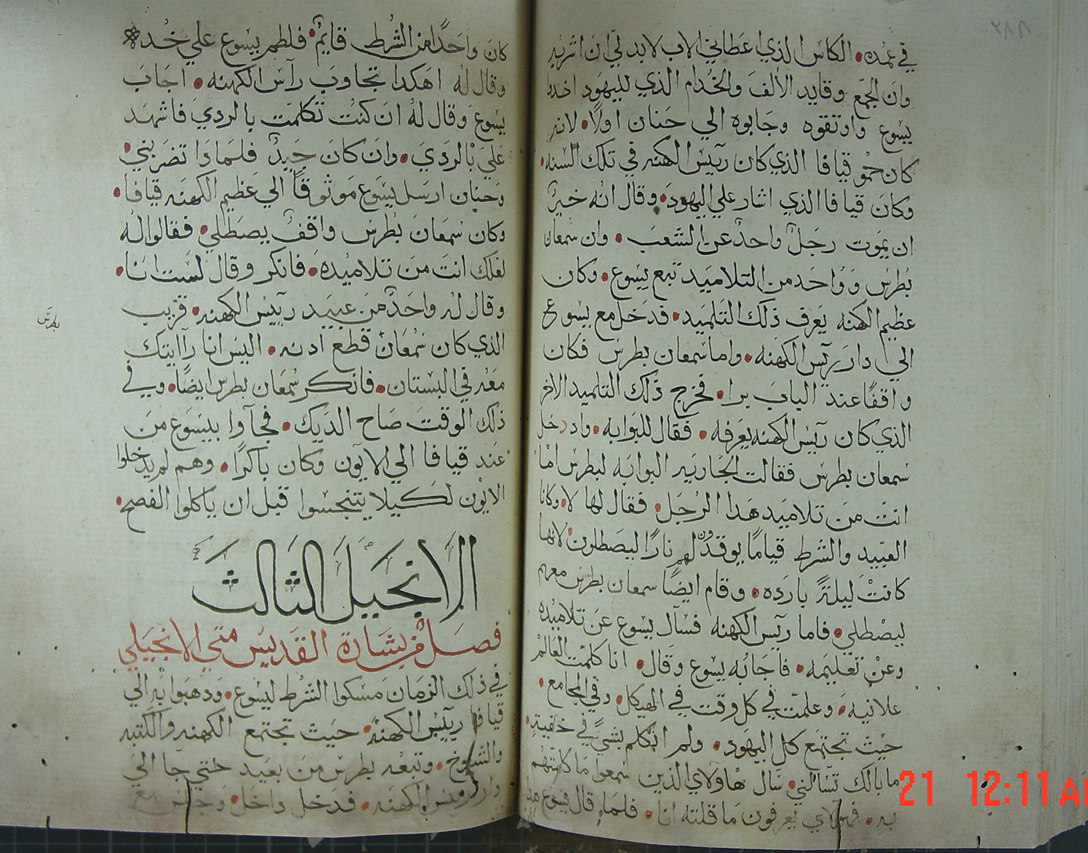 في غمده • الكاس الذي اعطاني الاب لابد لي ان اشربه
وان الجمع وقايد الالف والخدام الذي لليهود اخدوا
يسوع واوتقوه وجابوه الي حنان اولا • لانه
كان حمو قيافا الذي كان رييس الكهنه في تلك السنه •
وكان قيافا الذي اشار علي اليهود • وقال انه خير
ان يموت رجل واحد عن الشعب • وان سمعان
بطرس وواحد من التلاميد تبع يسوع • وكان
عظيم الكهنه يعرف ذلك التلميد • فدخل مع يسوع
الي دار رييس الكهنه • واما سمعان بطرس فكان
واقفا عند الباب برا • فخرج ذلك التلميد الاخر
الذي كان رييس الكهنه يعرفه • فقال للبوابه • وادخل
سمعان بطرس فقالت الجاريه البوابه لبطرس اما
انت من تلاميد هدا الرجل • فقال لها لا • وكانا
العبيد والشرط قياما يوقدون لهم نارا ليصطلون لانها
كانت ليلة بارده • وقام ايضا سمعان بطرس معهم
ليصطلي • فاما رييس الكهنه فسال يسوع عن تلاميده
وعن تعليمه • فاجابه يسوع وقال • انا كلمت العالم
علانيه • وعلمت في كل وقت في الهيكل • وفي المجامع •
حيث تجتمع كل اليهود • ولم اتكلم بشي في خفية •
ما بالك تسالني • سال هاولاي الذين سمعوا ما كلمتهم
به • فهولاي يعرفون ما قلته انا • فلما قال يسوع هدا
٢٨٨
كان واحدا من الشرط قايم • فلطم يسوع علي خده
وقال له اهكدا تجاوب راس الكهنه • اجاب
يسوع وقال له ان كنت تكلمت بالردي فاشهد
علي بالردي • وان كان جيد فلمادا تضربني •
وحنان ارسل يسوع موثوقا الي عظيم الكهنه قيافا •
وكان سمعان بطرس واقف يصطلي • فقالوا له
لعلك انت من تلاميده • فانكر وقال لست انا •
وقال له واحد من عبيد رييس الكهنه • قريب
الذي كان سمعان قطع ادنه • اليس انا رايتك
معه في البستان • فانكر سمعان بطرس ايضا • وفي
ذلك الوقت صاح الديك • فجاوا بيسوع من
عند قيافا الي الايون وكان باكرا • وهم لم يدخلوا
الايون لكيلا يتنجسوا قبل ان ياكلوا الفصح •
الانجيل الثالث
فصل من بشارة القديس متي الانجيلي
في ذلك الزمان مسكوا الشرط ليسوع • ودهبوا به الي
قيافا رييس الكهنه • حيث تجتمع الكهنه والكتبه
والشيوخ • وتبعه بطرس من بعيد حتي جا الي
دار رييس الكهنه • فدخل داخل • وجلس مع
21 12:11 AM